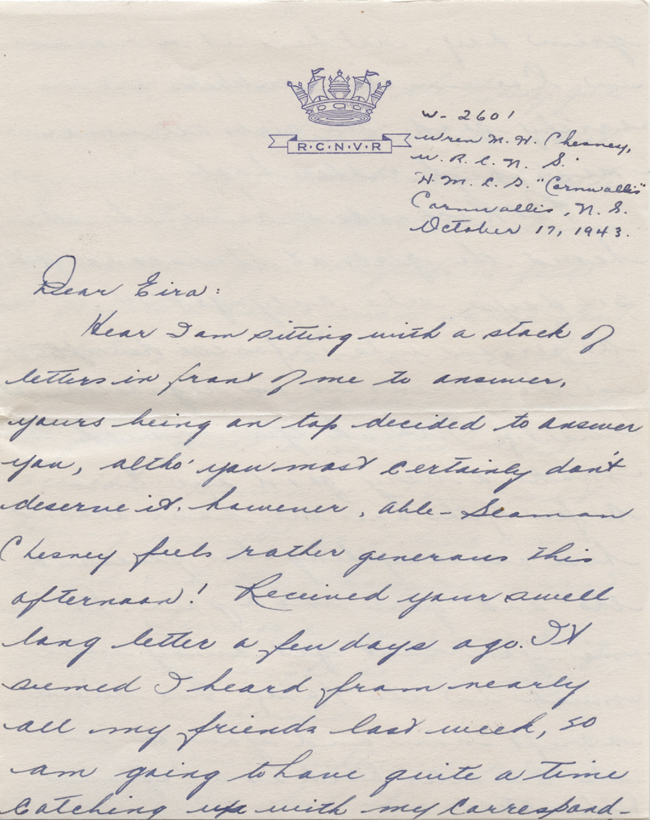 R·C·N·V·R
W-2601
Wren N. H. Chesney,
W. R. C. N. S.
H. M. C. S. "Cornwallis"
Cornwallis, N. S.
October 17, 1943.
Dear Eira:
Hear I am sitting with a stack of
letters in front of me to answer,
yours being on top decided to answer
you, altho' you most certainly don't
deserve it. however, Able-Seaman
Chesney feels rather generous this
afternoon! Received your swell
long letter a few days ago. It
seemed I heard from nearly
all my friends last week, so
am going to have quite a time
catching up with my correspond-